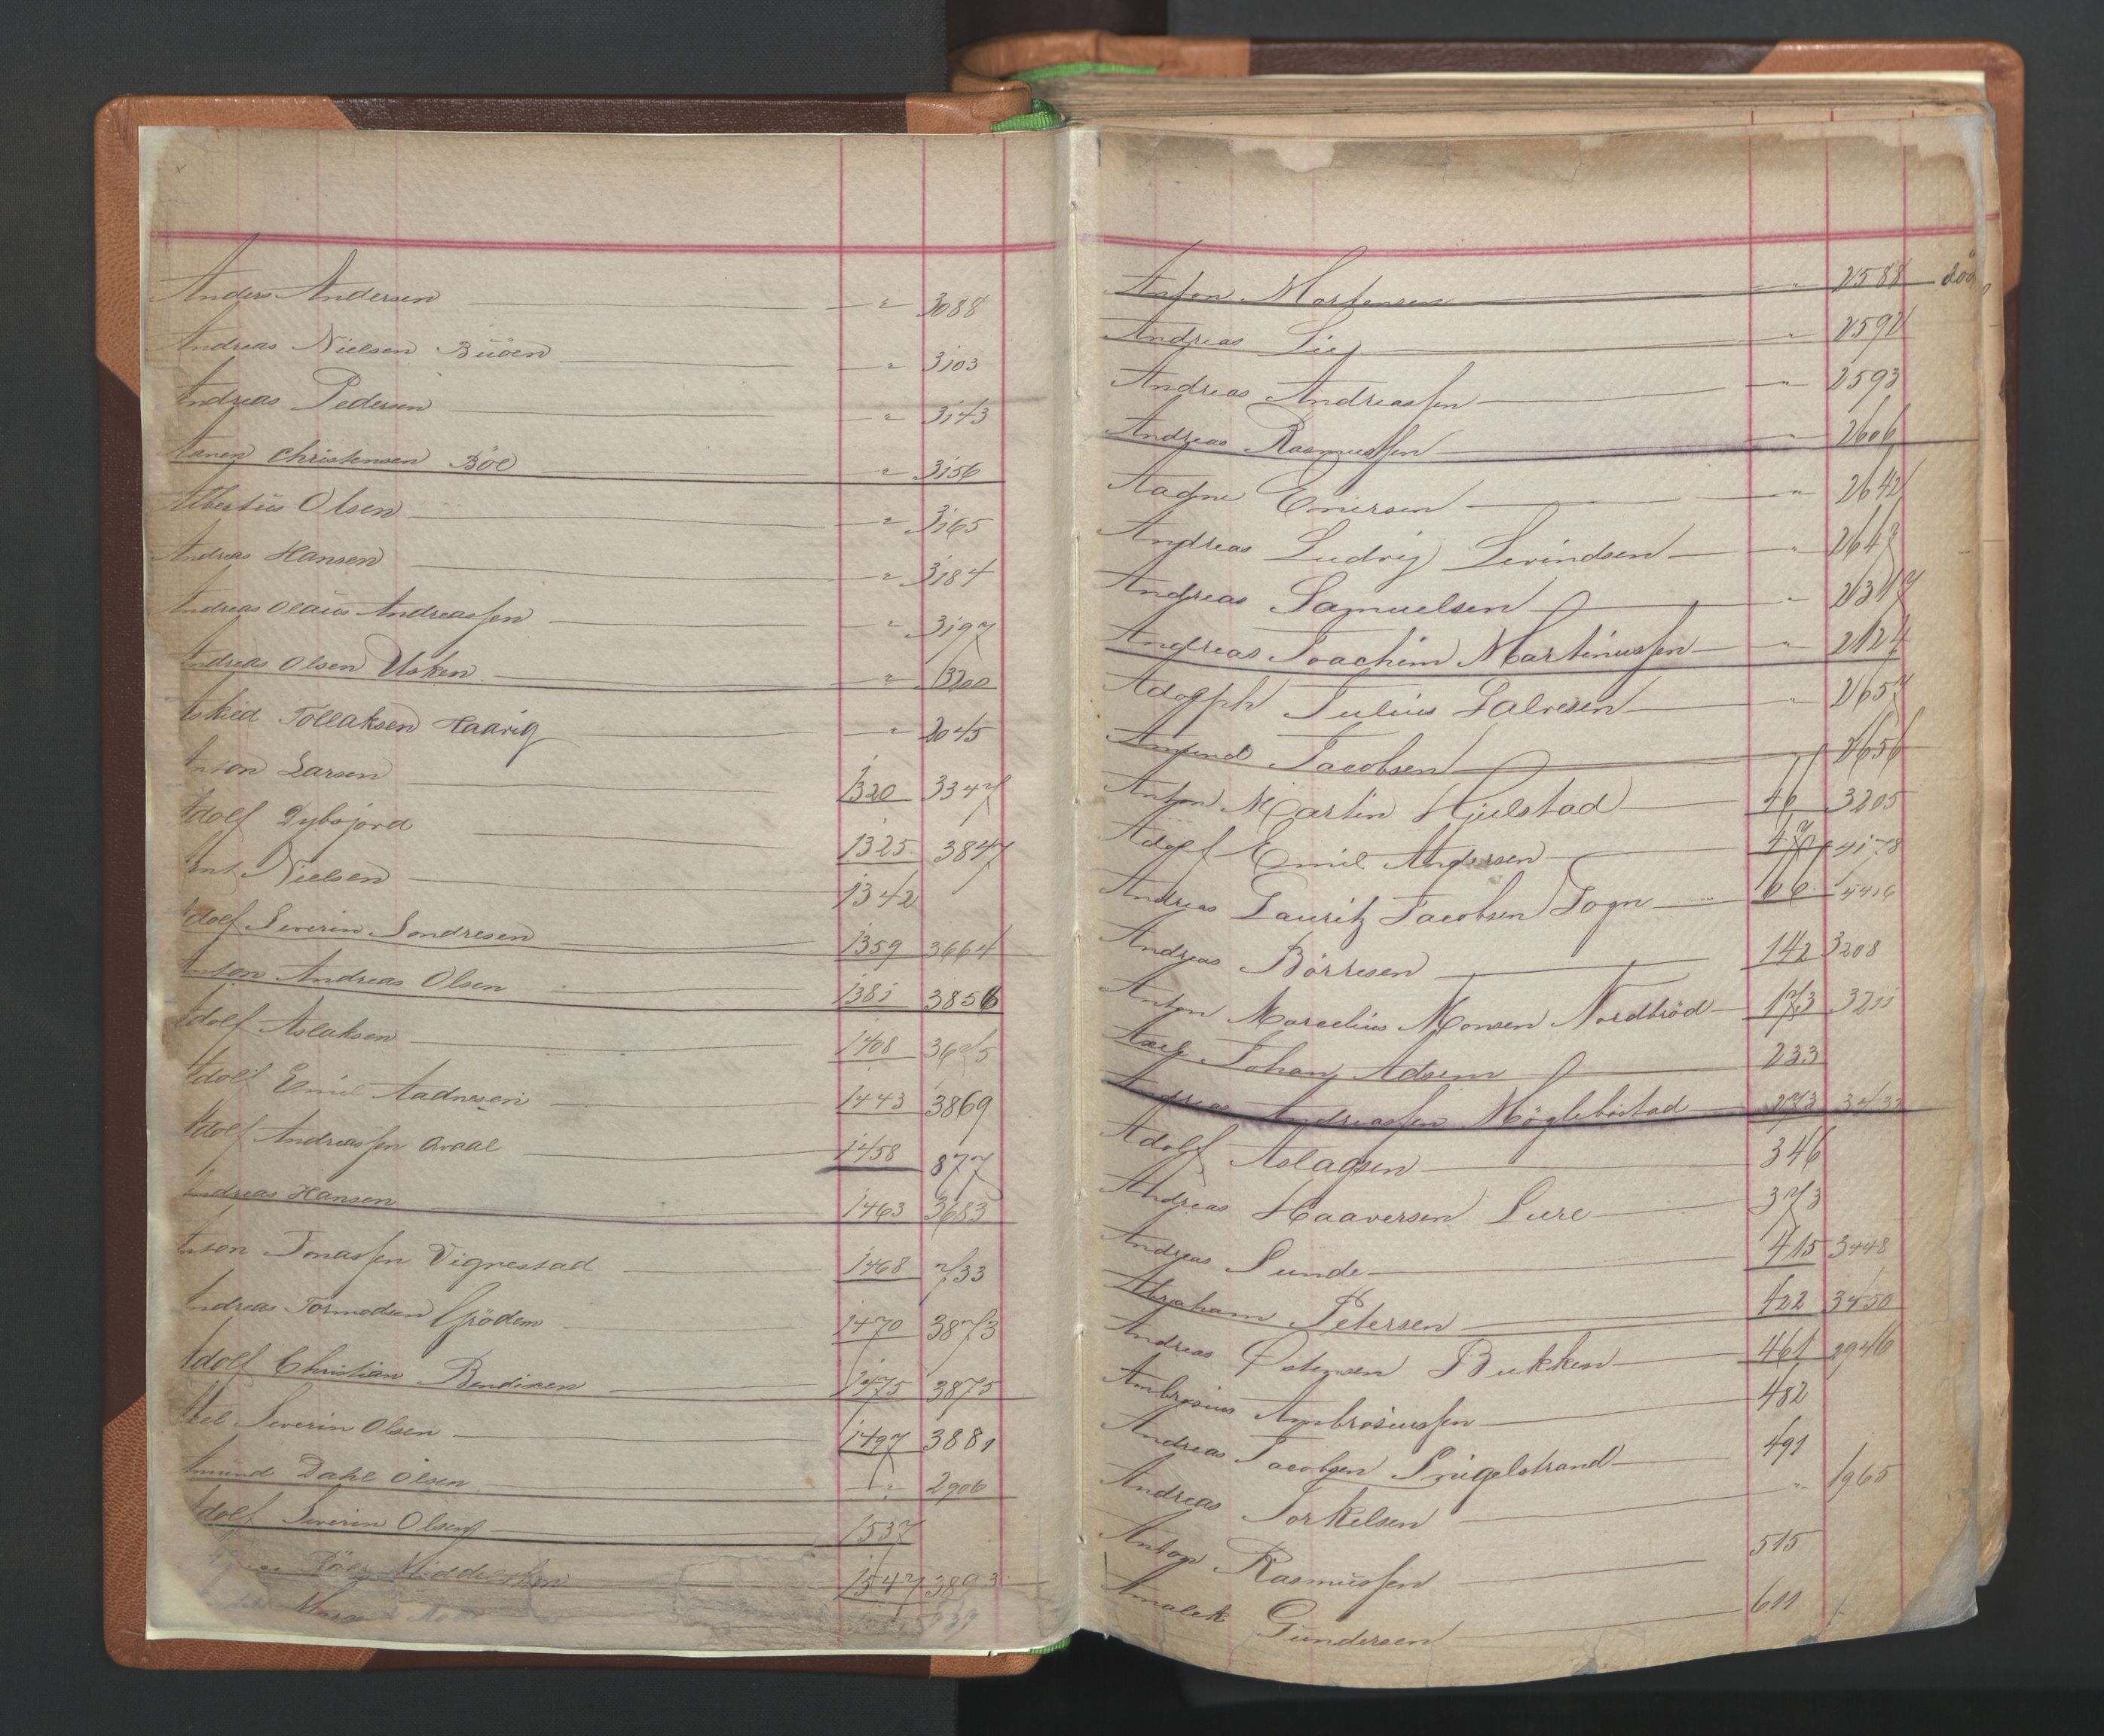 Anders Andersen " 3088
Andreas Nielsen Büoen " 3103
Andreas Pedersen " 3143
Aanen Christensen Böe " 3156
Albertüs Olsen " 3165
Andreas Hansen " 3184
Andreas Olaüs Andreassen " 3197
Andreas Olsen Usken " 3200
Askild Tollaksen Haavig " 2045
Anton Larsen 1320 3347
Adolf Dybsjord 1325 3847
Ant Nielsen 1342
Adolf Severin Sondresen 1359 3664
Anton Andreas Olsen 1381 3856
Adolf Aslaksen 1408 3675
Adolf Emil Aadnesen 1443 3869
Adolf Andreassen Araal 1458 877
Andreas Hansen 1463 3683
Anton Jonassen Vignestad 1468 733
Andreas Tormodsen Grödem 1470 3873
Adolf Christian Bendixen 1475 3875
Axel Severin Olsen 1497 3881
Amünd Dahl Olsen " 2906
Adolf Severin Olsen 1537
1547 3893
Anton Mortensen " 2588 död
Andreas Lie " 2592
Andreas Andreassen " 2593
Andreas Rasmussen " 2606
Aagne Enersen " 2642
Andreas Ludvig Sevindsen " 2643
Andreas Samuelsen " 2317
Andreas Joachim Martinussen " 2124
Adolph Julius Salvesen " 2657
Amund Jacobsen " 2656
Anton Martin Hjelstad 46 3205
Adolf Emil Andersen 47 4178
Andreas Lauritz Jacobsen Sogn 66 4416
Andreas Börresen 142 3208
Anton Marcelius Monsen Nordbröd 173 3211
Axel Johan Adsem 233
Andreas Andreassen Mögleböstad 273 3433
Adolf Aslagsen 346
Andreas Haaversen Lure 373
Andreas Lunde 415 3448
Abraham Petersen 422 3450
Andreas Ostensen Bukken 461 2946
Ambrosius Ambrosiussen 482
Andreas Jacobsen Snigelstrand 491
Andreas Torkelsen " 1965
Anton Rasmüssen 515
Amalek Gundersen 611